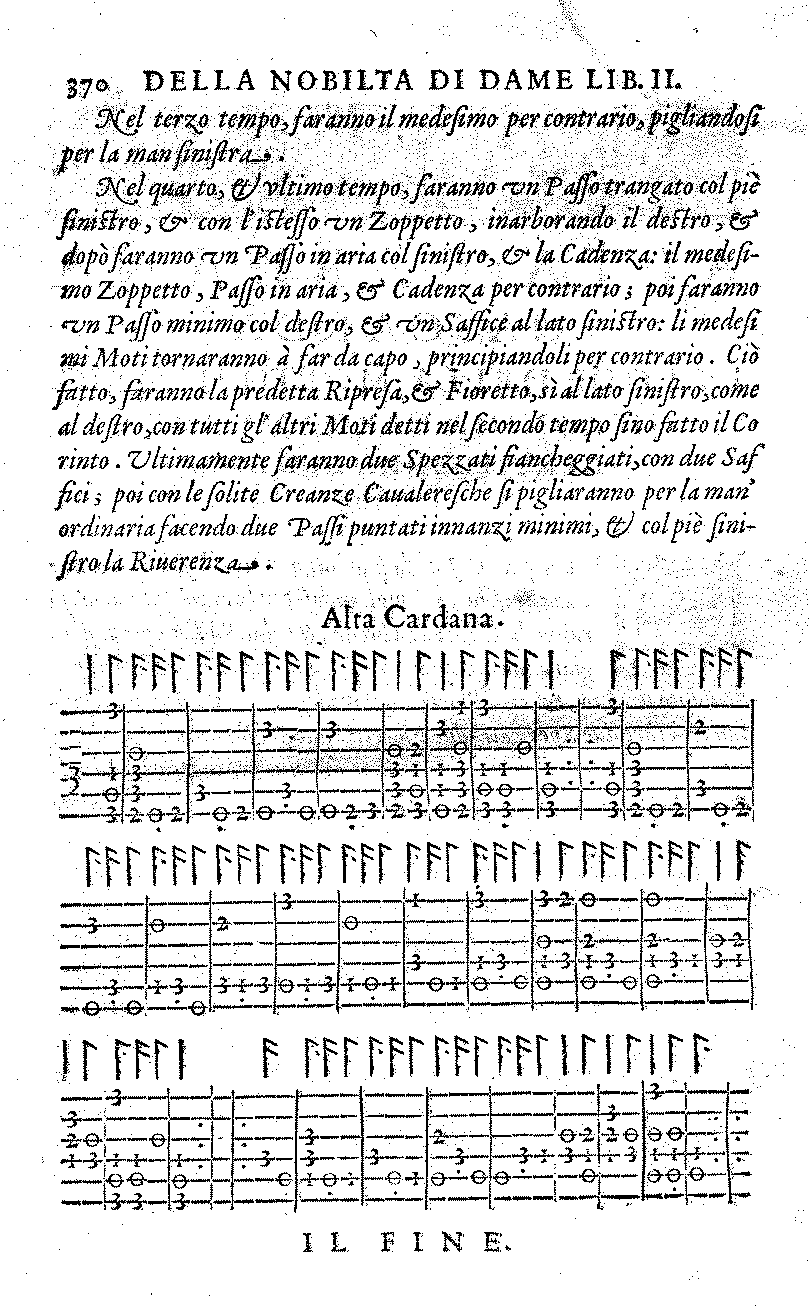 370 DELLA NOBILTA DI DAME LIB. II.
Nel terzo tempo, faranno il medesimo per contrario, pigliandosi
per la man sinistra.
Nel quarto, & vltimo tempo, faranno vn Passo trangato col piè
sinistro, & con l'istesso vn Zoppetto, inarborando il destro, &
dopò faranno vn Passo in aria col sinistro, & la Cadenza: il medesi-
mo Zoppetto, Passo in aria, & Cadenza per contrario; poi faranno
vn Passo minimo col destro, & vn Saffice al lato sinistro: li medesi
mi Moti tornaranno à far da capo, principiandoli per contrario. Ciò
fatto, faranno la predetta Ripresa, & Fioretto, sì al lato sinistro, come
al destro, con tutti gl'altri Moti detti nel secondo tempo sino fatto il Co
rinto. Vltimamente faranno due Spezzati fiancheggiati, con due Saf
fici; poi con le solite Creanze Caualeresche si pigliaranno per la man'
ordinaria facendo due Passi puntati innanzi minimi, & col piè sini-
stro la Riuerenza.
Alta Cardana.
IL FINE.